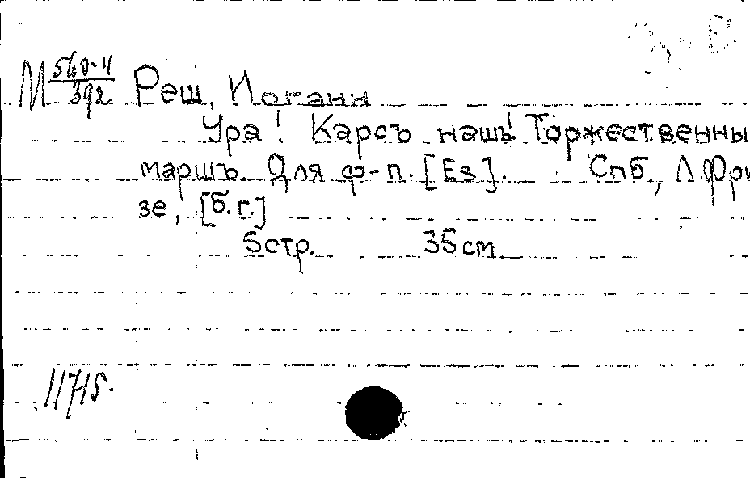 М 560-4/392 Реш, Иоганн
Ура! Карсъ нашъ! Торжественны
маршъ. Для ф-п. [Es]. Спб., Л. Фри
зе, [б.г.]
5 стр. 35 см
11715.